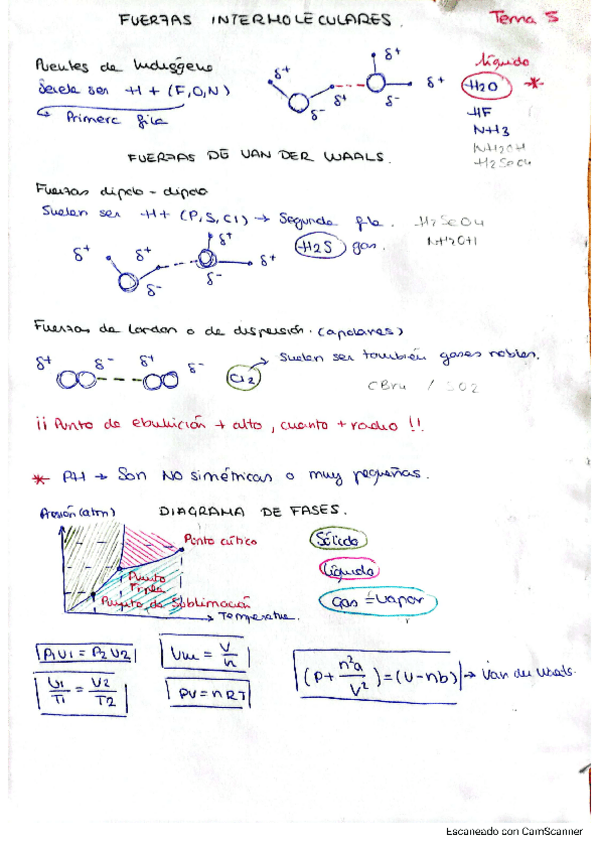 FUERZAS INTERMOLECULARES.
Tema 5
Puentes de hidrógeno
Suele ser -H + (F,O,N)
↳ Primera fila
δ+ δ- δ+ δ+ δ- δ+
líquido
H2O *
HF
NH3
NH2OH
H2SeO4
FUERZAS DE VAN DER WAALS.
Fuerzas dipolo - dipolo
Suelen ser -H + (P,S,Cl) → Segunda fila.
H2SeO4
NH2OH
H2S gas.
δ+ δ+ δ- δ+ δ- δ+
Fuerzas de London o de dispersión. (apolares)
δ+ δ- δ+ δ-
Cl2 → Suelen ser también gases nobles.
CBr4 / SO2
¡¡ Punto de ebullición + alto, cuanto + radio !!
* PH → Son NO simétricas o muy pequeñas.
Presión (atm)
DIAGRAMA DE FASES.
Punto crítico
Punto Triple
Punto de Sublimación
Temperatur.
Sólido
líquido
gas = vapor
P1V1 = P2V2
V1/T1 = V2/T2
Vm = V/n
PV = nRT
(P + n²a/V²) = (V - nb) → Van der Waals.
Escaneado con CamScanner